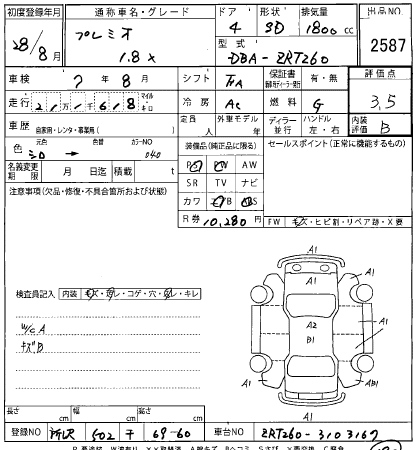 初度登録年月 通称車名・グレード ドア 形状 排気量 出品NO
28/8月 プレミオ 1.8X 4 SD 1800cc 2587
型式
DBA-ZRT260
車検 7年8月 シフト FA 保証書 有・無 評価点
走行 マイル キロ 冷房 AC 燃料 G 3.5
車歴 自家用・レンタ・事業用( ) 定員 人 外車モデル 年 ディーラー 並行 ハンドル 左・右 内装評価 B
色 元色 シロ 色替 カラーNO 040 装備品(純正品に限る) セールスポイント(正常に機能する物)
名義変更期限 月 日迄 積載 t PS PW AW
注意事項(欠品・修復・不具合箇所および状態) SR TV ナビ
カワ
R券 10,280円 FW キズ・ヒビ割・リペア跡・X要
検査員記入 内装 キズ・汚レ・コゲ・穴・キレ
W/C A
キズB
A1
A1
A1
A2
B1
A1
A1
A1
AB1
A1
長さ cm 幅 cm 高さ cm
登録NO 所沢 502 69-60 車台NO ZRT260-3103167